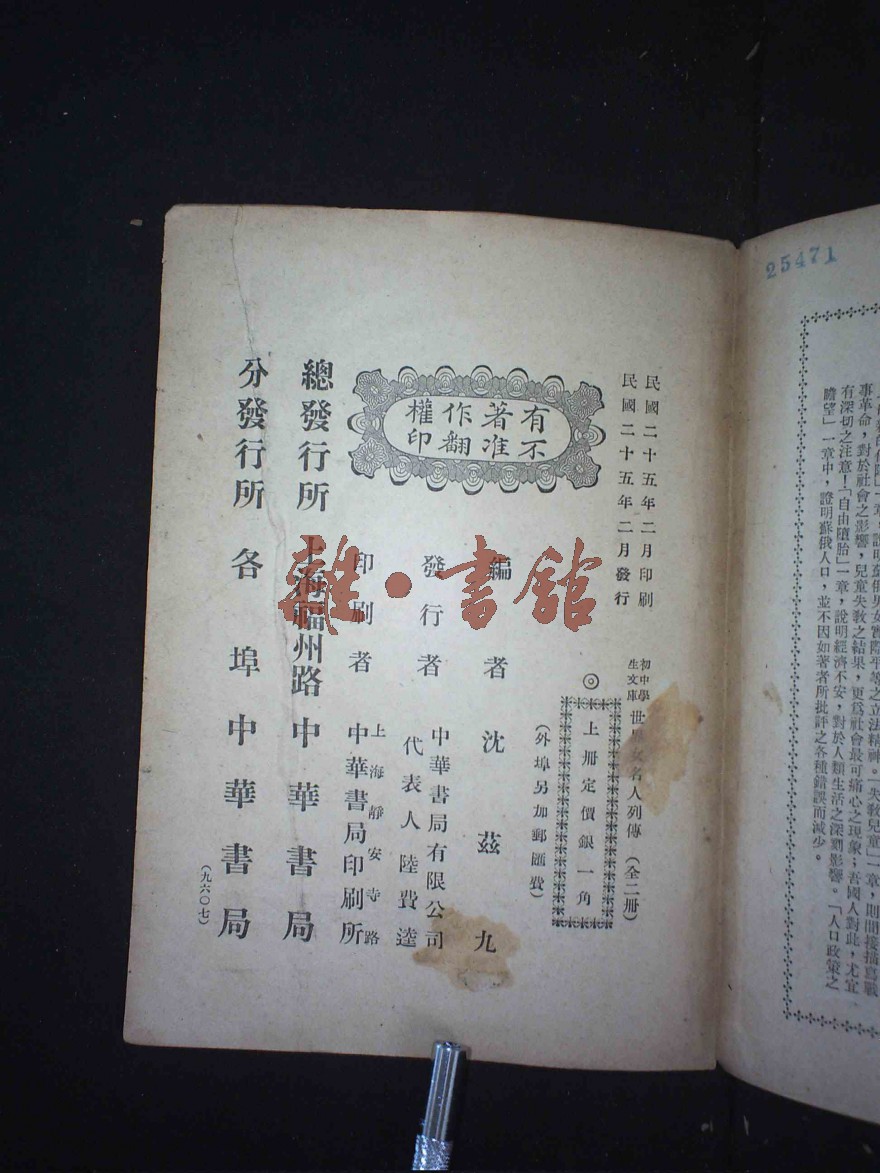 民國二十五年二月印刷
民國二十五年二月發行
初中學
生文庫
世界女名人列傳(全二册)
◎上册定價銀一角
(外埠另加郵匯費)
有著作權
不准翻印
編者 沈茲九
發行者 中華書局有限公司
代表人 陸費逵
印刷者 上海靜安寺路
中華書局印刷所
總發行所 上海福州路 中華書局
分發行所 各埠中華書局
(九六〇七)
雜·書館
25471
事革命,對於社會之影響,兒童失教之結果,更爲社會最可痛心之現象;吾國人對此,尤宜
有深切之注意!「自由墮胎」一章,說明經濟不安,對於人類生活之深刻影響。「人口政策之
瞻望」一章中,證明蘇俄人口,並不因如著者所批評之各種錯誤而減少。